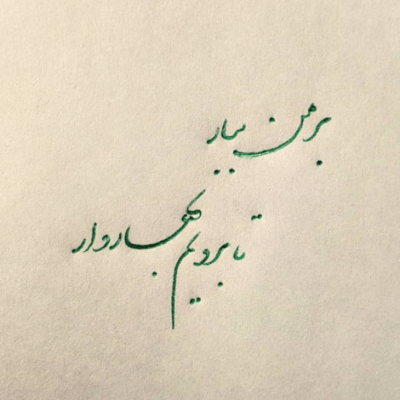 بر من ببار
تا برویم بهاروار